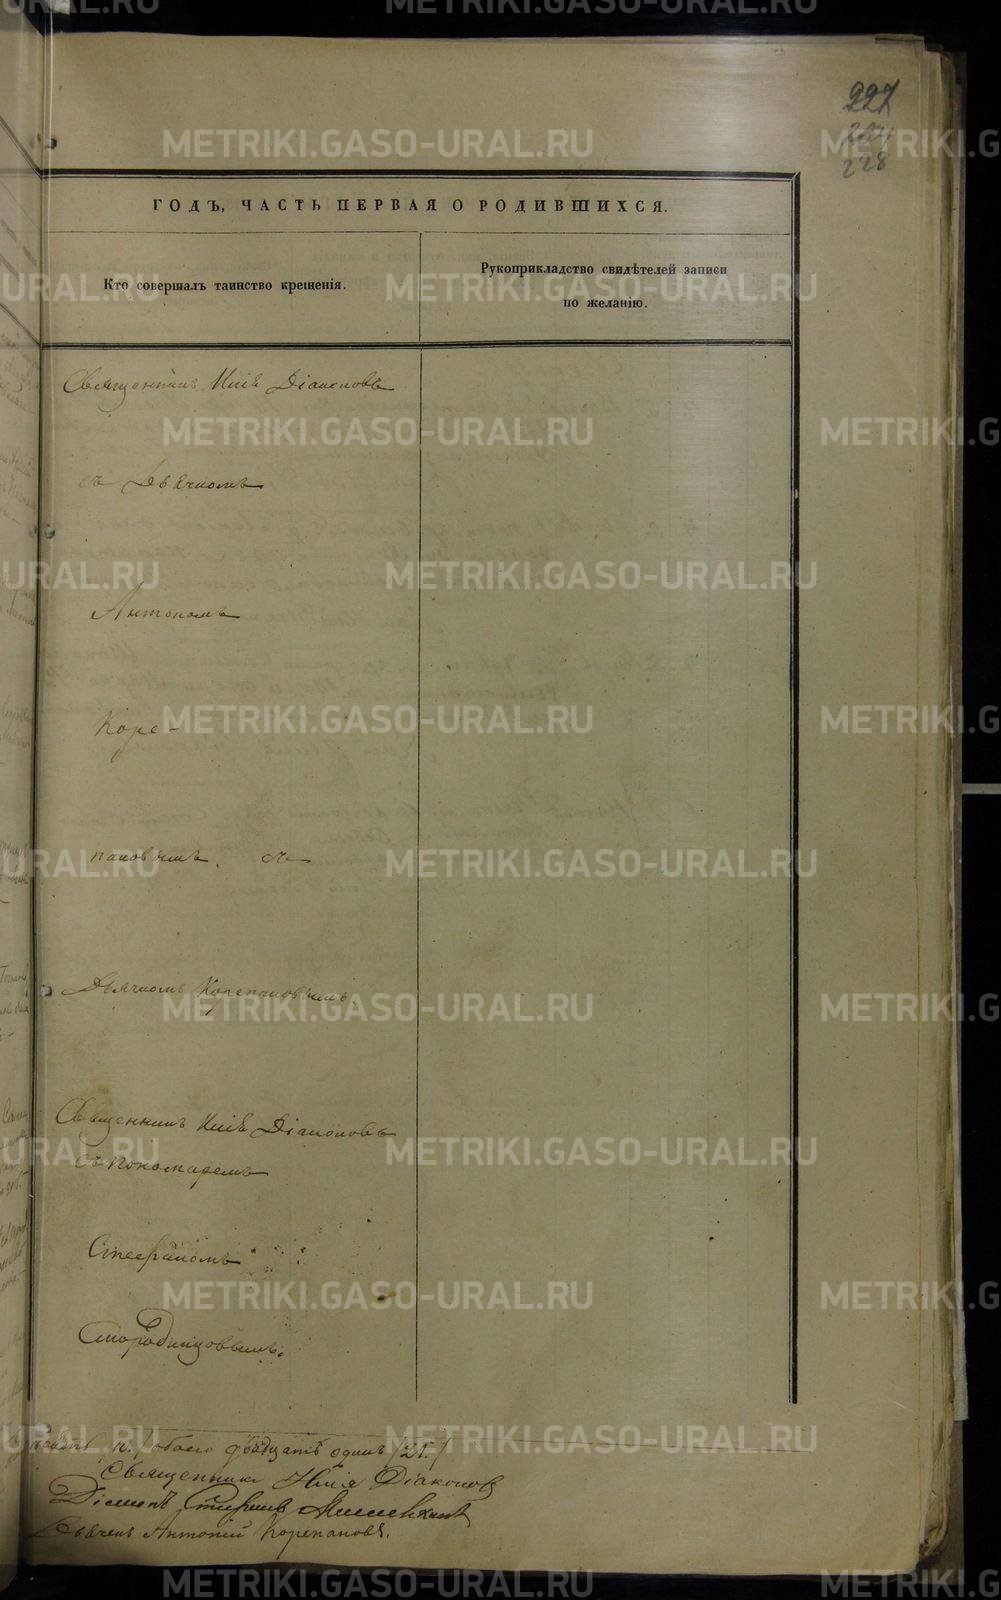 227
228
ГОДЪ, ЧАСТЬ ПЕРВАЯ О РОДИВШИХСЯ.
Кто совершалъ таинство крещенія.
Рукоприкладство свидѣтелей записи
по желанію.
Священникъ Илія Діаконовъ
съ Дьячкомъ
Антономъ
Коре-
пановымъ. съ
Дьячкомъ Корепановымъ.
Священникъ Илія Діаконовъ
съ пономаремъ
Стефаномъ
Смородинцовымъ.
обоего двадцать одинъ (21.)
Священникъ Илія Діаконовъ
Діаконъ
Дьячекъ Антоній Корепановъ.
METRIKI.GASO-URAL.RU